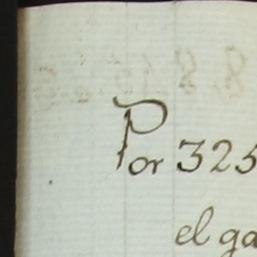 Por 325
el ga